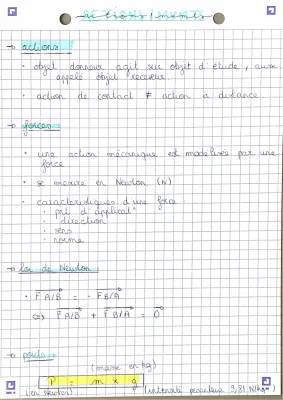 actions / mvmts
→ actions
• objet donneur agit sur objet d'étude, aussi
appelé objet receveur
• action de contact ≠ action à distance
→ forces
• une action mécanique est modélisée par une
force
• se mesure en Newton (N)
• caractéristiques d'une force :
• pt d'applicat°
• direction
• sens
• norme
→ loi de Newton
• F A/B = - F B/A
⇔ F A/B + F B/A = 0
→ poids
(masse en kg)
P = m x g
(en Newton) (intensité pesanteur 9,81 N/kg)